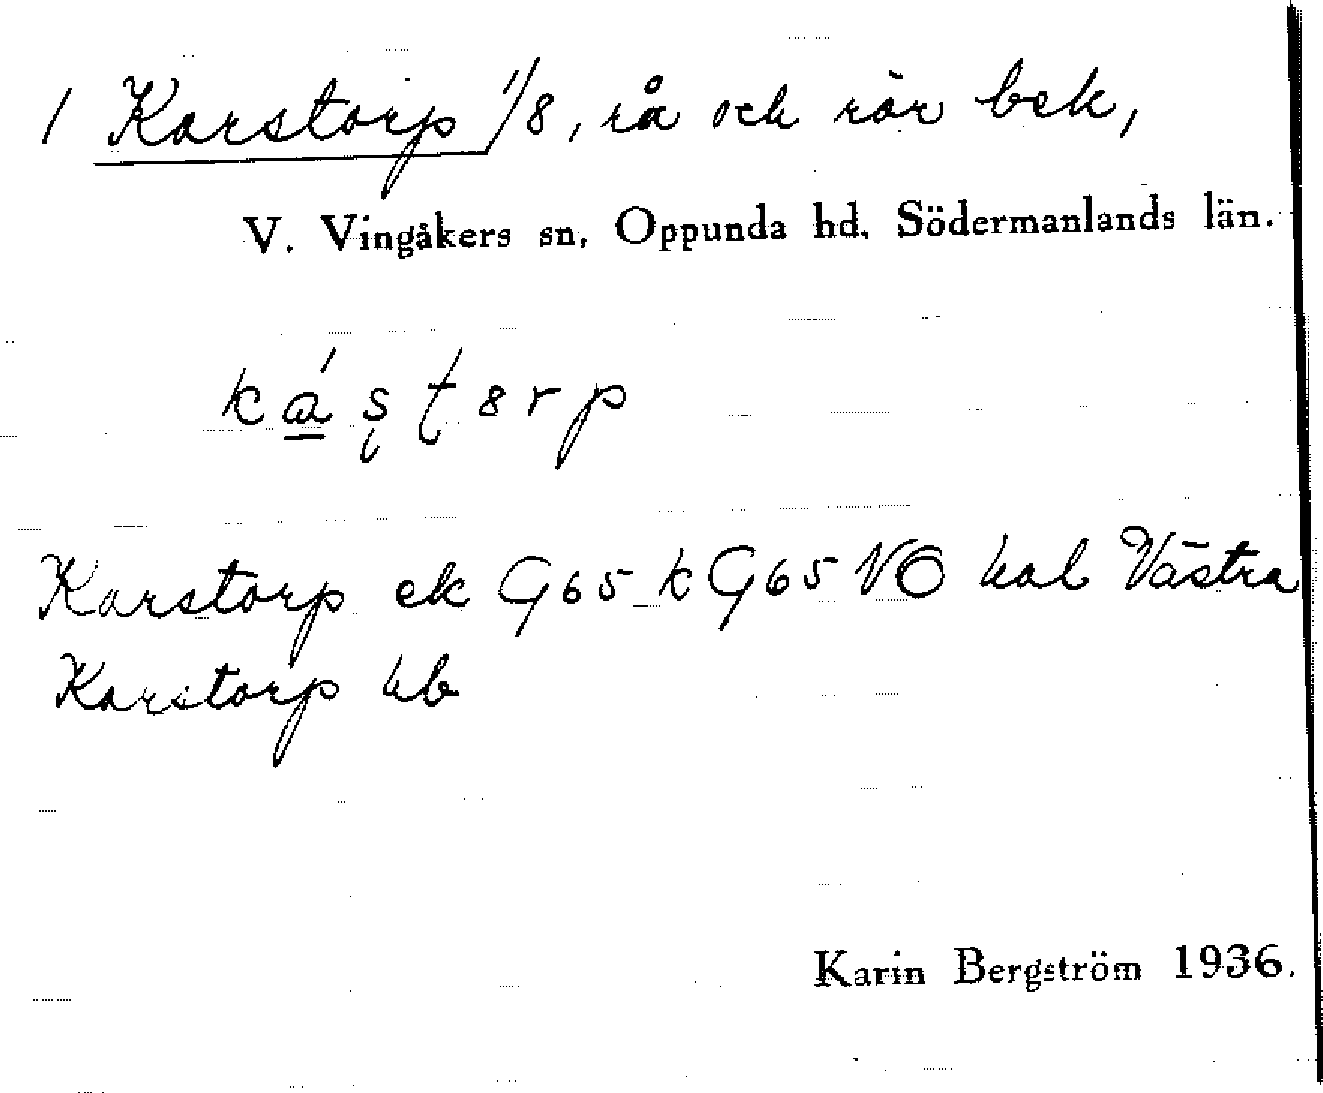 1 Karstorp 1/8, rå och rör bek,
V. Vingåkers sn, Oppunda hd, Södermanlands län.
Karstorp ek G65 k G65 VO hal Västra
Karstorp hb
Karin Bergström 1936.